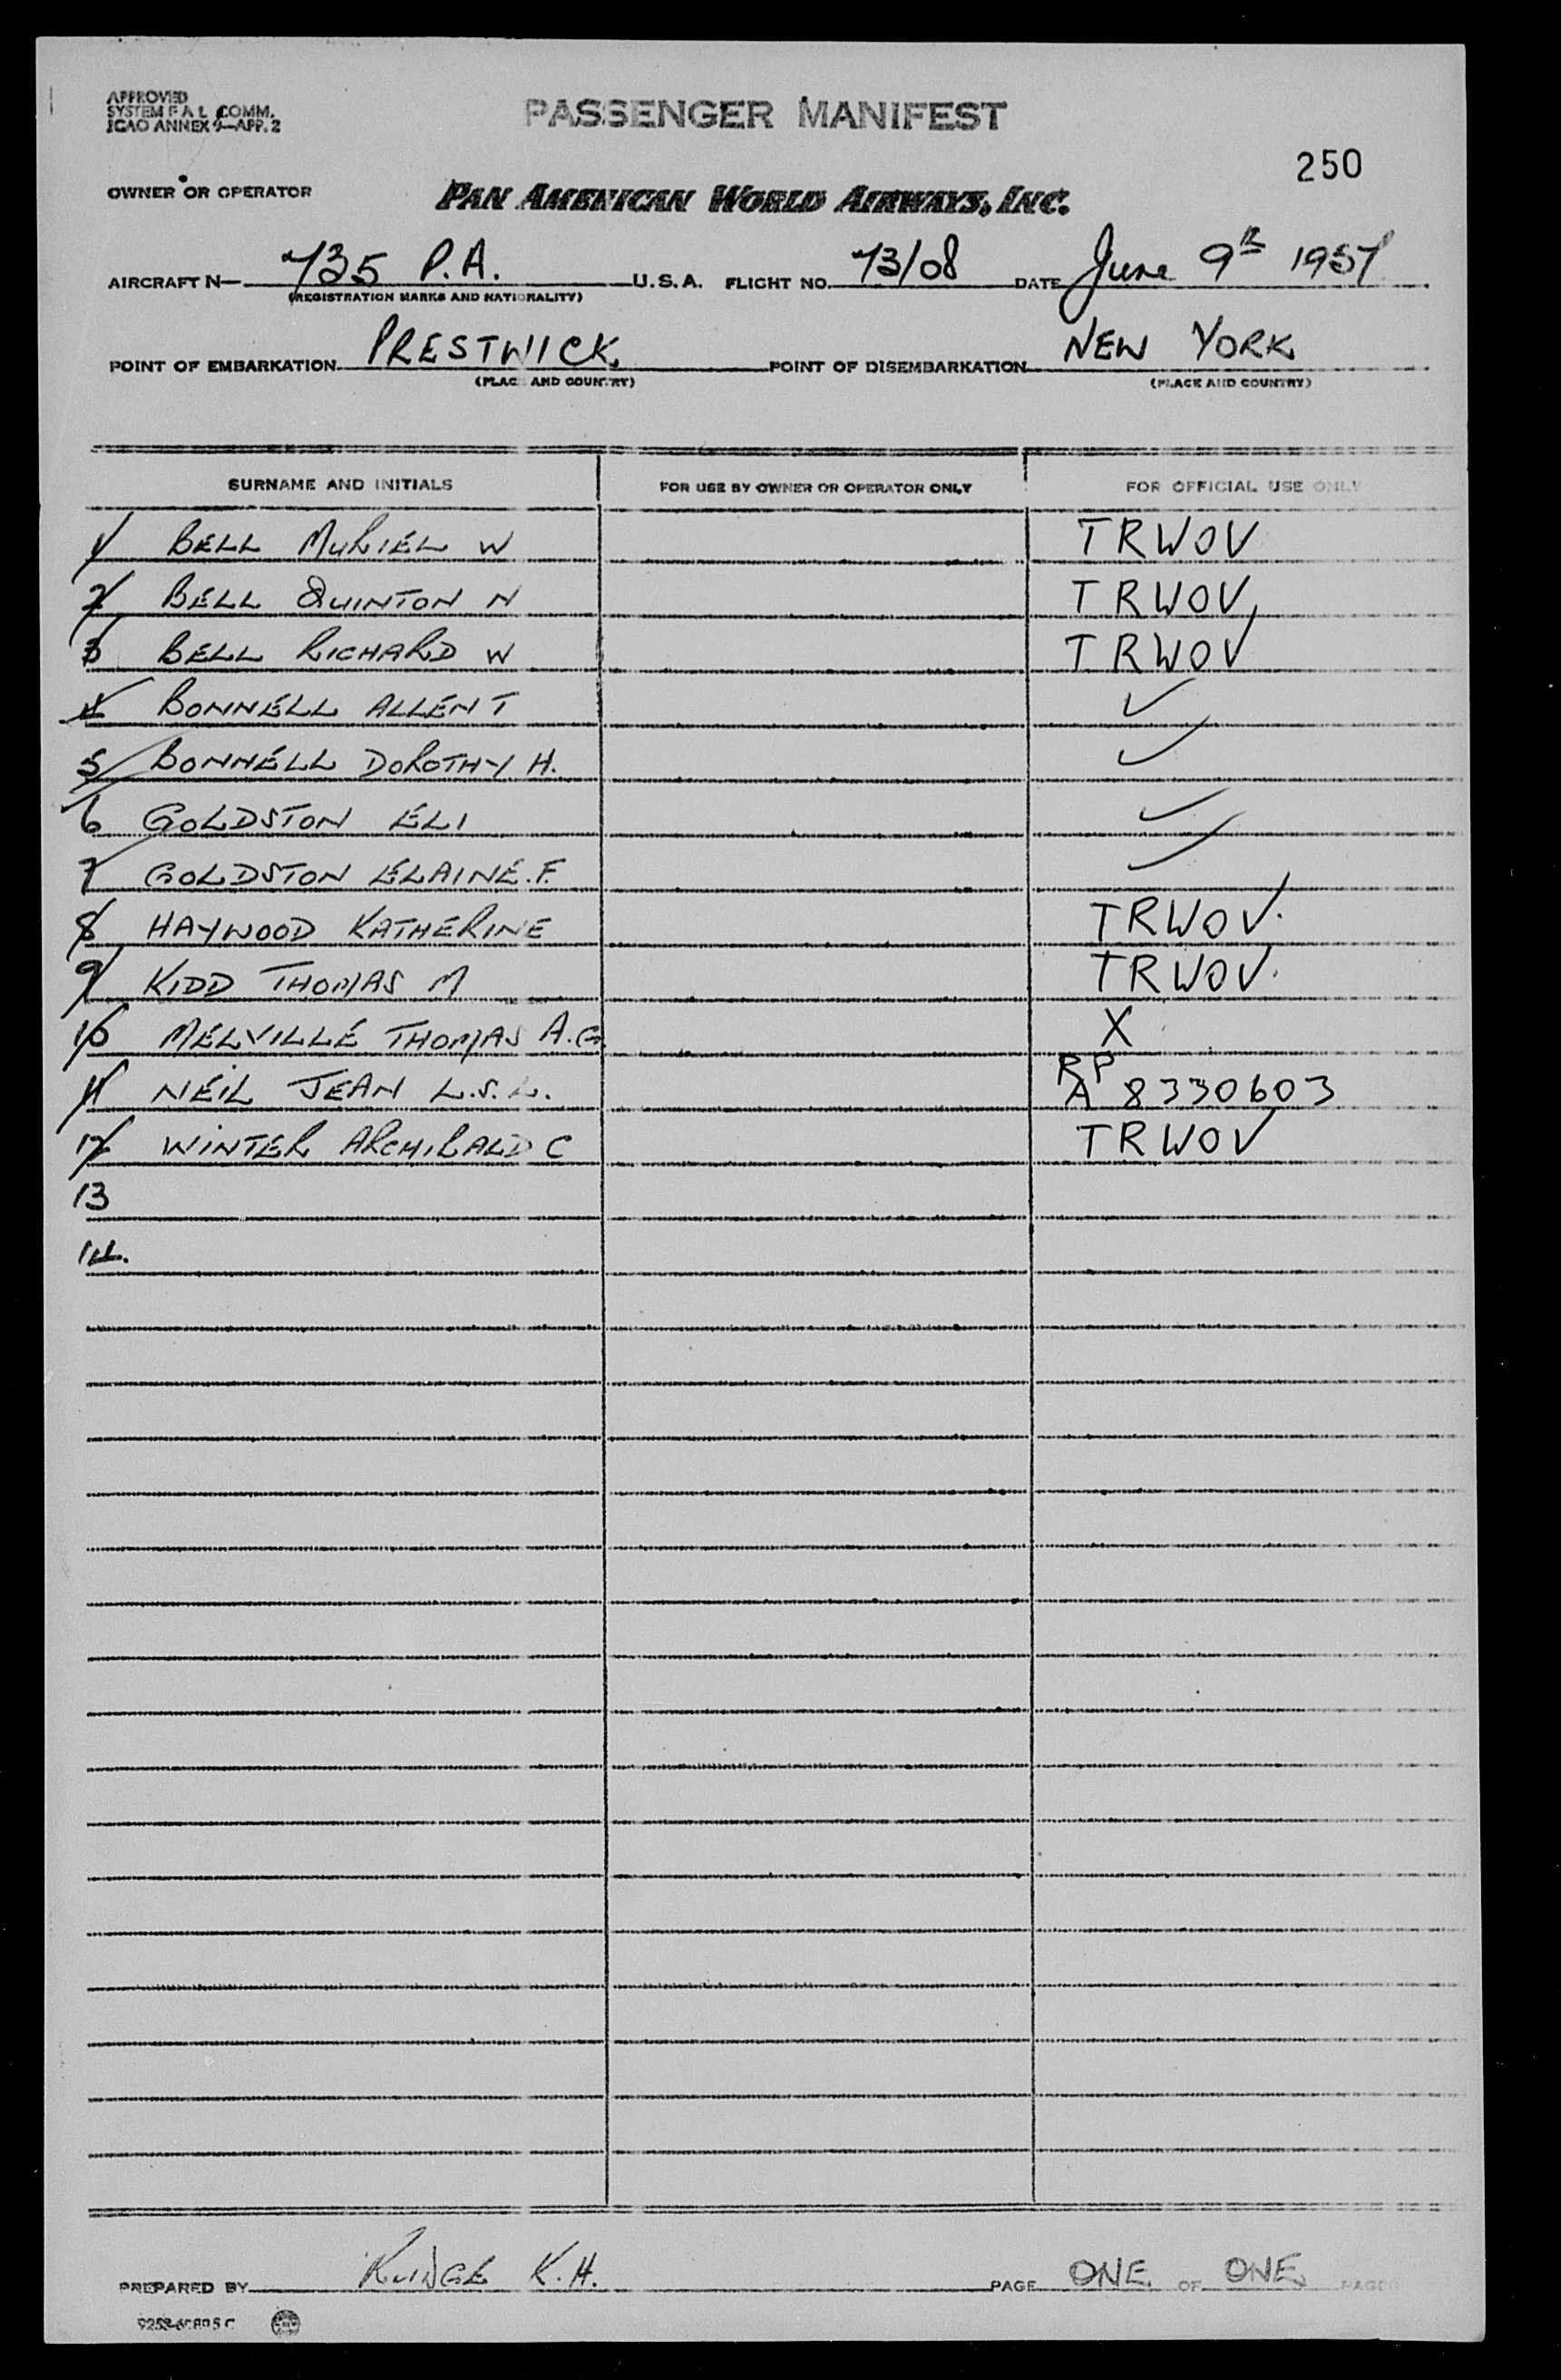 APPROVED
SYSTEM F A L COMM.
ICAO ANNEX 9—APP. 2
PASSENGER MANIFEST
250
OWNER OR OPERATOR PAN AMERICAN WORLD AIRWAYS, INC.
AIRCRAFT N— 735 P.A. U.S.A. FLIGHT NO. 73/08 DATE June 9th 1957
(REGISTRATION MARKS AND NATIONALITY)
POINT OF EMBARKATION PRESTWICK POINT OF DISEMBARKATION NEW YORK
(PLACE AND COUNTRY) (PLACE AND COUNTRY)
SURNAME AND INITIALS FOR USE BY OWNER OR OPERATOR ONLY FOR OFFICIAL USE ONLY
1 BELL MURIEL W TRWOV
2 BELL QUINTON N TRWOV
3 BELL RICHARD W TRWOV
4 BONNELL ALLEN T ✓
5 BONNELL DOROTHY H. ✓
6 GOLDSTON ELI ✓
7 GOLDSTON ELAINE.F. ✓
8 HAYWOOD KATHERINE TRWOV.
9 KIDD THOMAS M TRWOV.
10 MELVILLE THOMAS A.G. X
RP
11 NEIL JEAN L.S.L. A 8330603
12 WINTER ARCHIBALD C TRWOV
13
14.
PREPARED BY K.H. PAGE ONE OF ONE PAGES